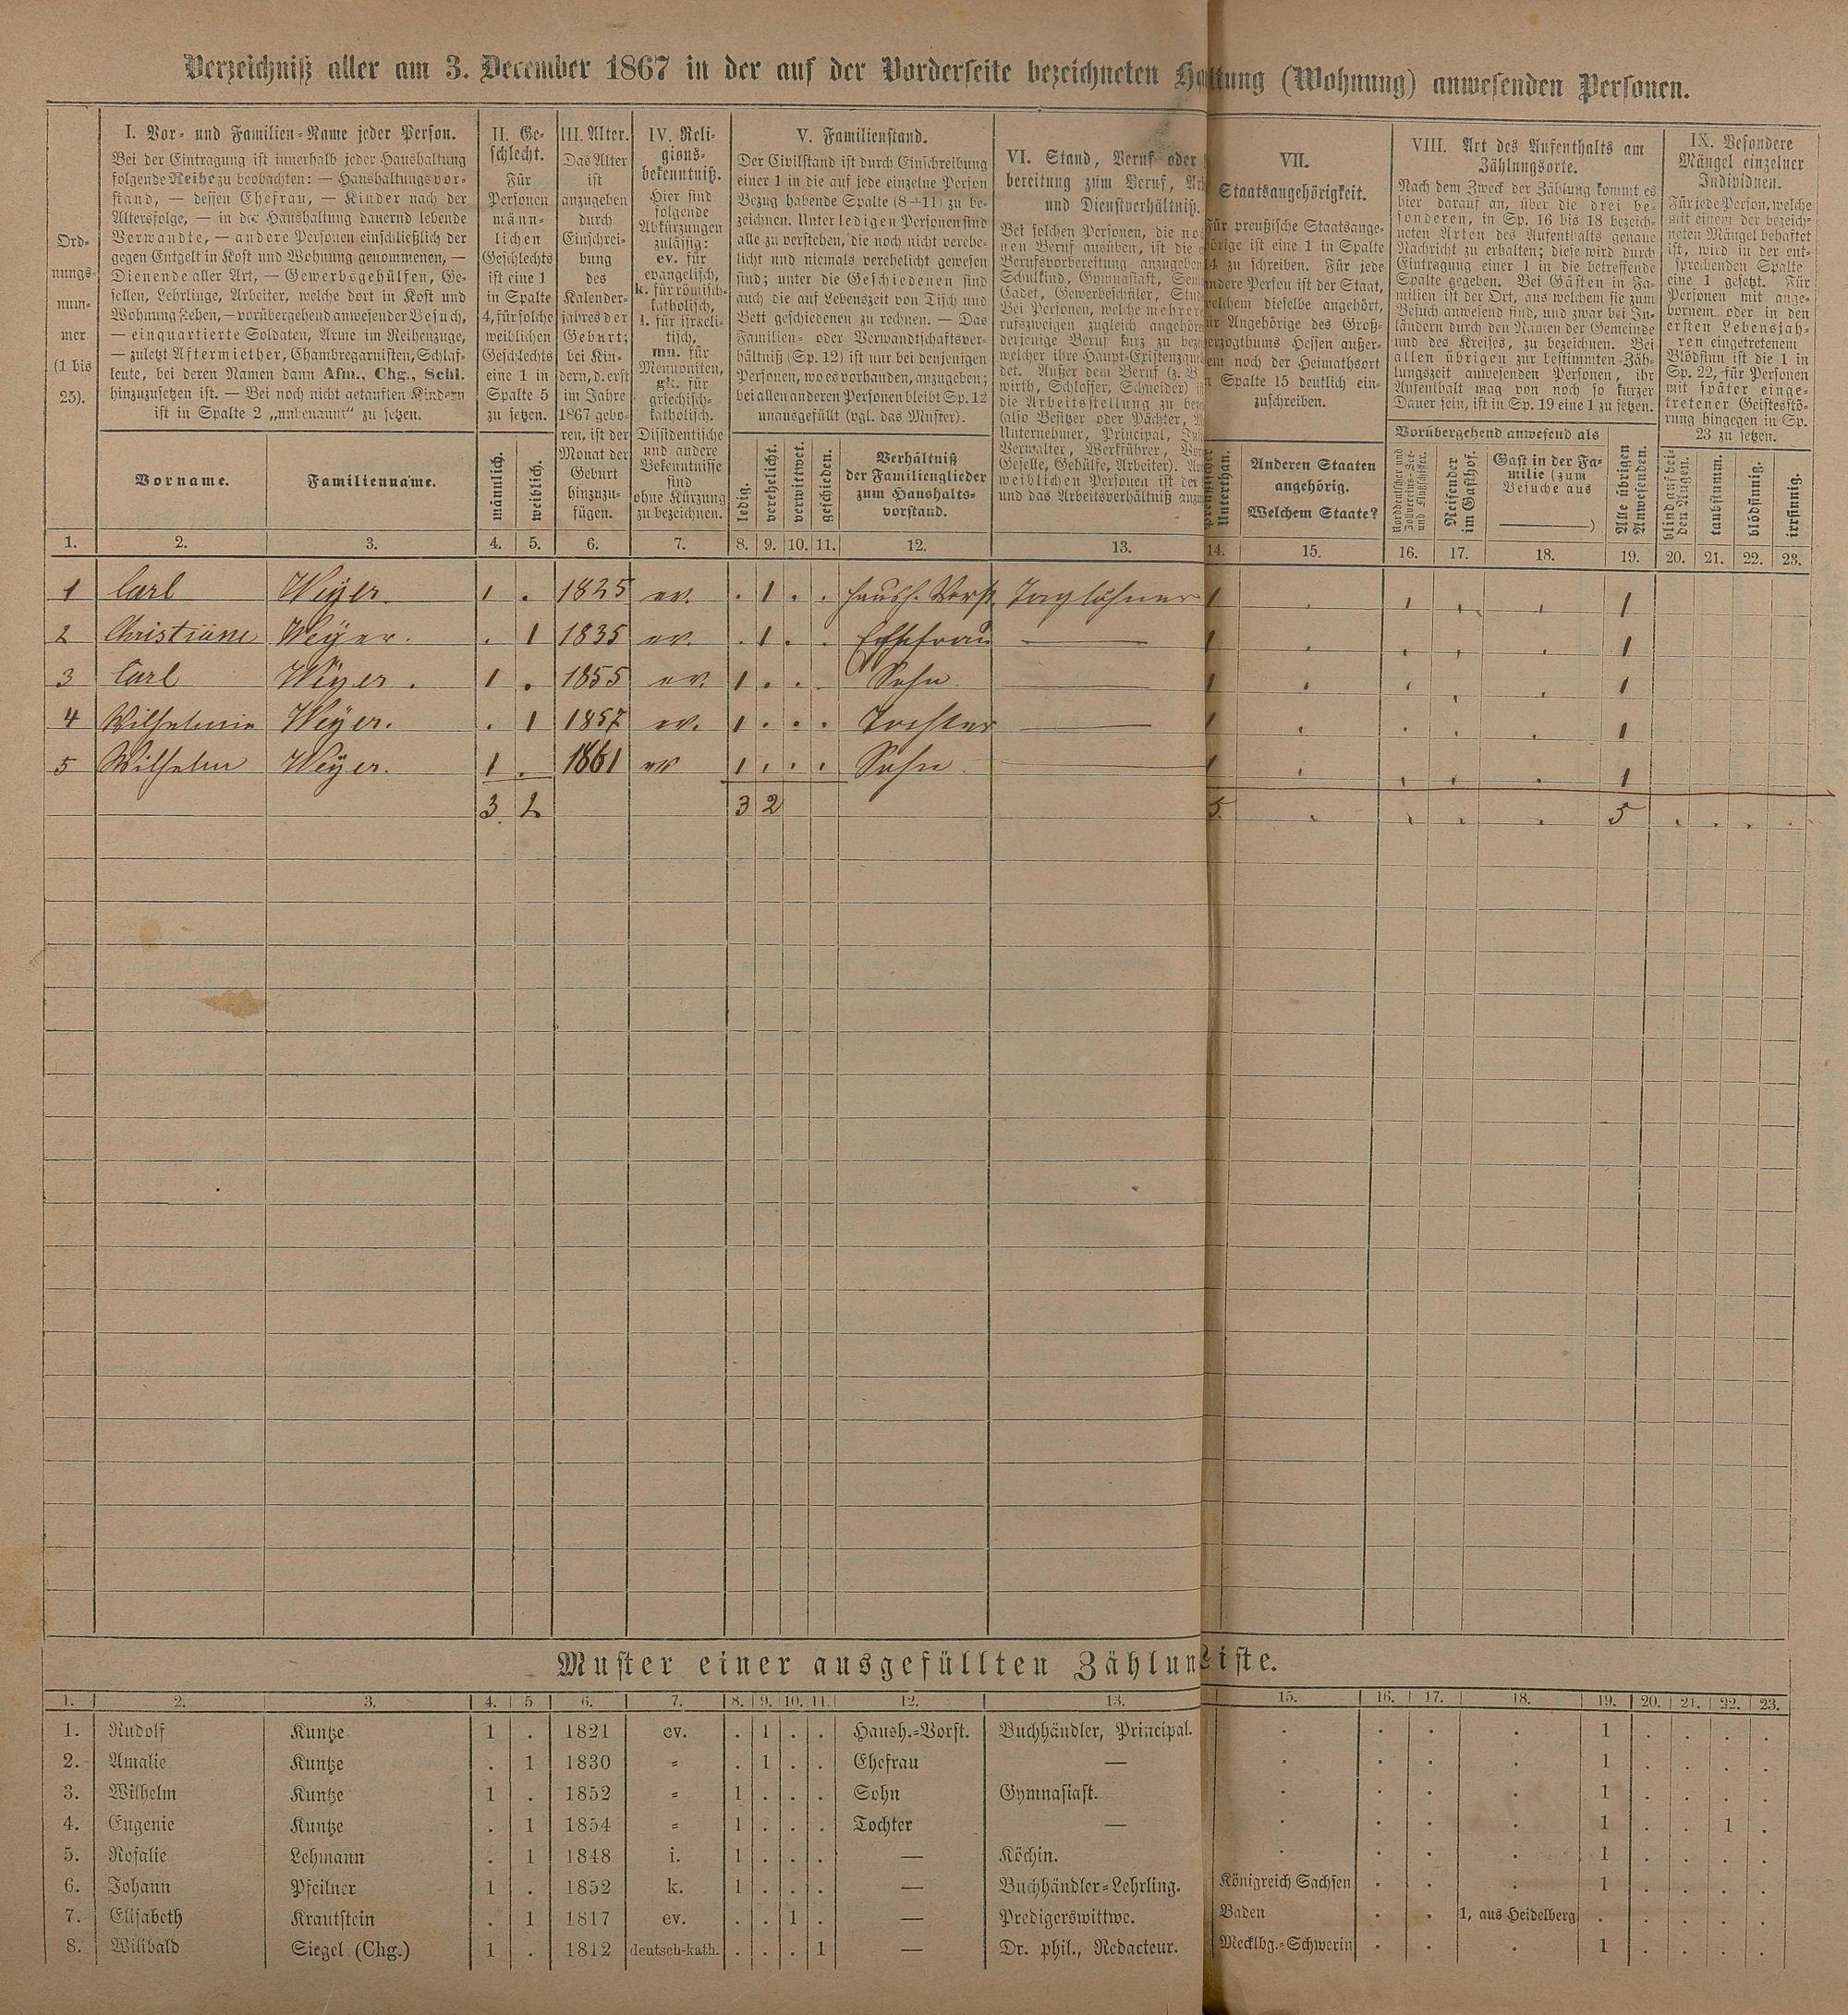 Verzeichniß aller am 3. December 1867 in der auf der Vorderseite bezeichneten Haltung (Wohnung) anwesenden Personen.
Ord-
nungs-
num-
mer
(1 bis
25).
I. Vor- und Familien-Name jeder Person.
Bei der Eintragung ist innerhalb jeder Haushaltung
folgende Reihe zu beobachten: — Haushaltungsvor-
stand, — dessen Ehefrau, — Kinder nach der
Altersfolge, — in der Haushaltung dauernd lebende
Verwandte, — andere Personen einschließlich der
gegen Entgelt in Kost und Wohnung genommenen, —
Dienende aller Art, — Gewerbsgehülfen, Ge-
sellen, Lehrlinge, Arbeiter, welche dort in Kost und
Wohnung stehen, — vorübergehend anwesender Besuch,
— einquartierte Soldaten, Arme im Reihenzuge,
— zuletzt Aftermiether, Chambregarnisten, Schlaf-
leute, bei deren Namen dann Afm., Chg., Schl.
hinzuzusetzen ist. — Bei noch nicht getauften Kindern
ist in Spalte 2 „unbenannt" zu setzen.
Vorname.
Familienname.
II. Ge-
schlecht.
Für
Personen
männ-
lichen
Geschlechts
ist eine 1
in Spalte
4, für solche
weiblichen
Geschlechts
eine 1 in
Spalte 5
zu setzen.
männlich.
weiblich.
III. Alter.
Das Alter
ist
anzugeben
durch
Einschrei-
bung
des
Kalender-
jahres der
Geburt;
bei Kin-
dern, d. erst
im Jahre
1867 gebo-
ren, ist der
Monat der
Geburt
hinzuzu-
fügen.
IV. Reli-
gions-
bekenntniß.
Hier sind
folgende
Abkürzungen
zulässig:
ev. für
evangelisch,
k. für römisch-
katholisch,
i. für israeli-
tisch,
mn. für
Mennoniten,
gk. für
griechisch-
katholisch.
Dissidentische
und andere
Bekenntnisse
sind
ohne Kürzung
zu bezeichnen.
V. Familienstand.
Der Civilstand ist durch Einschreibung
einer 1 in die auf jede einzelne Person
Bezug habende Spalte (8—11) zu be-
zeichnen. Unter ledigen Personen sind
alle zu verstehen, die noch nicht verehe-
licht und niemals verehelicht gewesen
sind; unter die Geschiedenen sind
auch die auf Lebenszeit von Tisch und
Bett geschiedenen zu rechnen. — Das
Familien- oder Verwandtschaftsver-
hältniß (Sp. 12) ist nur bei denjenigen
Personen, wo es vorhanden, anzugeben;
bei allen anderen Personen bleibt Sp. 12
unausgefüllt (vgl. das Muster).
ledig.
verehelicht.
verwittwet.
geschieden.
Verhältniß
der Familienglieder
zum Haushalts-
vorstand.
VI. Stand, Beruf oder
bereitung zum Beruf,
und Dienstverhältniß.
Bei solchen Personen, die
nen Beruf ausüben, ist die
Berufsvorbereitung anzugeben
Schulkind, Gymnasiast,
Cadet, Gewerbeschüler,
Bei Personen, welche mehrere
rufszweigen zugleich
derjenige Beruf kurz zu
welcher ihre
det. Außer dem Beruf (z. B.
wirth, Schlosser, Schneider)
die Arbeitsstellung zu
(also Besitzer oder Pächter,
Unternehmer, Principal,
Verwalter, Werkführer,
Geselle, Gehülfe, Arbeiter).
weiblichen Personen ist der
und das Arbeitsverhältniß
VII.
Staatsangehörigkeit.
Für preußische Staatsange-
hörige ist eine 1 in Spalte
14 zu schreiben. Für jede
andere Person ist der Staat,
welchem dieselbe angehört,
für Angehörige des Groß-
herzogthums Hessen außer-
dem noch der Heimathsort
in Spalte 15 deutlich ein-
zuschreiben.
Unterthan.
Anderen Staaten
angehörig.
Welchem Staate?
VIII. Art des Aufenthalts am
Zählungsorte.
Nach dem Zweck der Zählung kommt es
hier darauf an, über die drei be-
sonderen, in Sp. 16 bis 18 bezeich-
neten Arten des Aufenthalts genaue
Nachricht zu erhalten; diese wird durch
Eintragung einer 1 in die betreffende
Spalte gegeben. Bei Gästen in Fa-
milien ist der Ort, aus welchem sie zum
Besuch anwesend sind, und zwar bei In-
ländern durch den Namen der Gemeinde
und des Kreises, zu bezeichnen. Bei
allen übrigen zur bestimmten Zäh-
lungszeit anwesenden Personen, ihr
Aufenthalt mag von noch so kurzer
Dauer sein, ist in Sp. 19 eine 1 zu setzen.
Vorübergehend anwesend als
Norddeutscher und
Zollvereins-See-
und Flußschiffer.
Reisender
im Gasthof.
Gast in der Fa-
milie (zum
Besuche aus
)
Alle übrigen
Anwesenden.
IX. Besondere
Mängel einzelner
Individuen.
Für jede Person, welche
mit einem der bezeich-
neten Mängel behaftet
ist, wird in der ent-
sprechenden Spalte
eine 1 gesetzt. Für
Personen mit ange-
bornem oder in den
ersten Lebensjah-
ren eingetretenem
Blödsinn ist die 1 in
Sp. 22, für Personen
mit später einge-
tretener Geistesstö-
rung hingegen in Sp.
23 zu setzen.
blind auf bei-
den Augen.
taubstumm.
blödsinnig.
irrsinnig.
1. 2. 3. 4. 5. 6. 7. 8. 9. 10. 11. 12. 13. 14. 15. 16. 17. 18. 19. 20. 21. 22. 23.
1 Carl Weÿer. 1 . 1825 ev. . 1 . . Haush. Vorst. Taglöhner 1 . 1
2 Christiane Weÿer. . 1 1835 ev. . 1 . . Ehefrau — 1 . . . . 1
3 Carl Weyer. 1 . 1855 ev. 1 . . . Sohn — 1 . . . . 1
4 Wilhelmin Weÿer. . 1 1857 ev. 1 . . . Tochter — 1 . . . . 1
5 Wilhelm Weÿer. 1 . 1861 ev 1 . . . Sohn. — 1 . . . . 1
3 2 3 2 5. . . . . 5 . . . .
Muster einer ausgefüllten Zählungsliste.
1. 2. 3. 4. 5 6. 7. 8. 9. 10. 11. 12. 13. 15. 16. 17. 18. 19. 20. 21. 22. 23.
1. Rudolf Kuntze 1 . 1821 ev. . 1 . . Haush.-Vorst. Buchhändler, Principal. . . . . 1 . . . .
2. Amalie Kuntze . 1 1830 = . 1 . . Ehefrau — . . . . 1 . . . .
3. Wilhelm Kuntze 1 . 1852 = 1 . . . Sohn Gymnasiast. . . . . 1 . . . .
4. Eugenie Kuntze . 1 1854 = 1 . . . Tochter — . . . . 1 . . 1 .
5. Rosalie Lehmann . 1 1848 i. 1 . . . — Köchin. . . . . 1 . . . .
6. Johann Pfeilner 1 . 1852 k. 1 . . . — Buchhändler-Lehrling. Königreich Sachsen . . . 1 . . . .
7. Elisabeth Krautstein . 1 1817 ev. . . 1 . — Predigerswittwe. Baden . . 1, aus Heidelberg . . . . .
8. Wilibald Siegel (Chg.) 1 . 1812 deutsch-kath. . . . 1 — Dr. phil., Redacteur. Mecklbg.-Schwerin . . . 1 . . . .